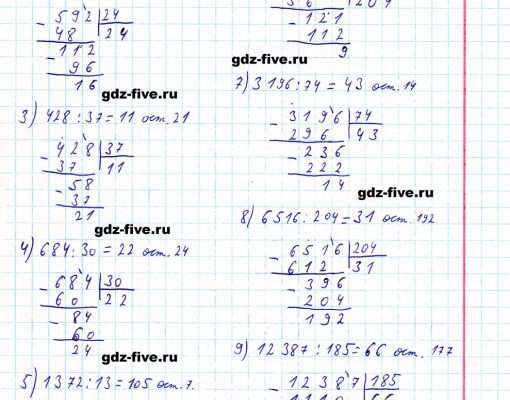 - 592 | 24
48 | 24
- 112
96
16
gdz-five.ru
3) 428 : 37 = 11 ост. 21
- 428 | 37
37 | 11
- 58
37
21
gdz-five.ru
4) 684 : 30 = 22 ост. 24
- 684 | 30
60 | 22
- 84
60
24
gdz-five.ru
5) 1372 : 13 = 105 ост. 7.
- 121
112
9
gdz-five.ru
7) 3196 : 74 = 43 ост. 14
- 3196 | 74
296 | 43
- 236
222
14
gdz-five.ru
8) 6516 : 204 = 31 ост. 192
- 6516 | 204
612 | 31
- 396
204
192
9) 12387 : 185 = 66 ост. 177
- 12387 | 185